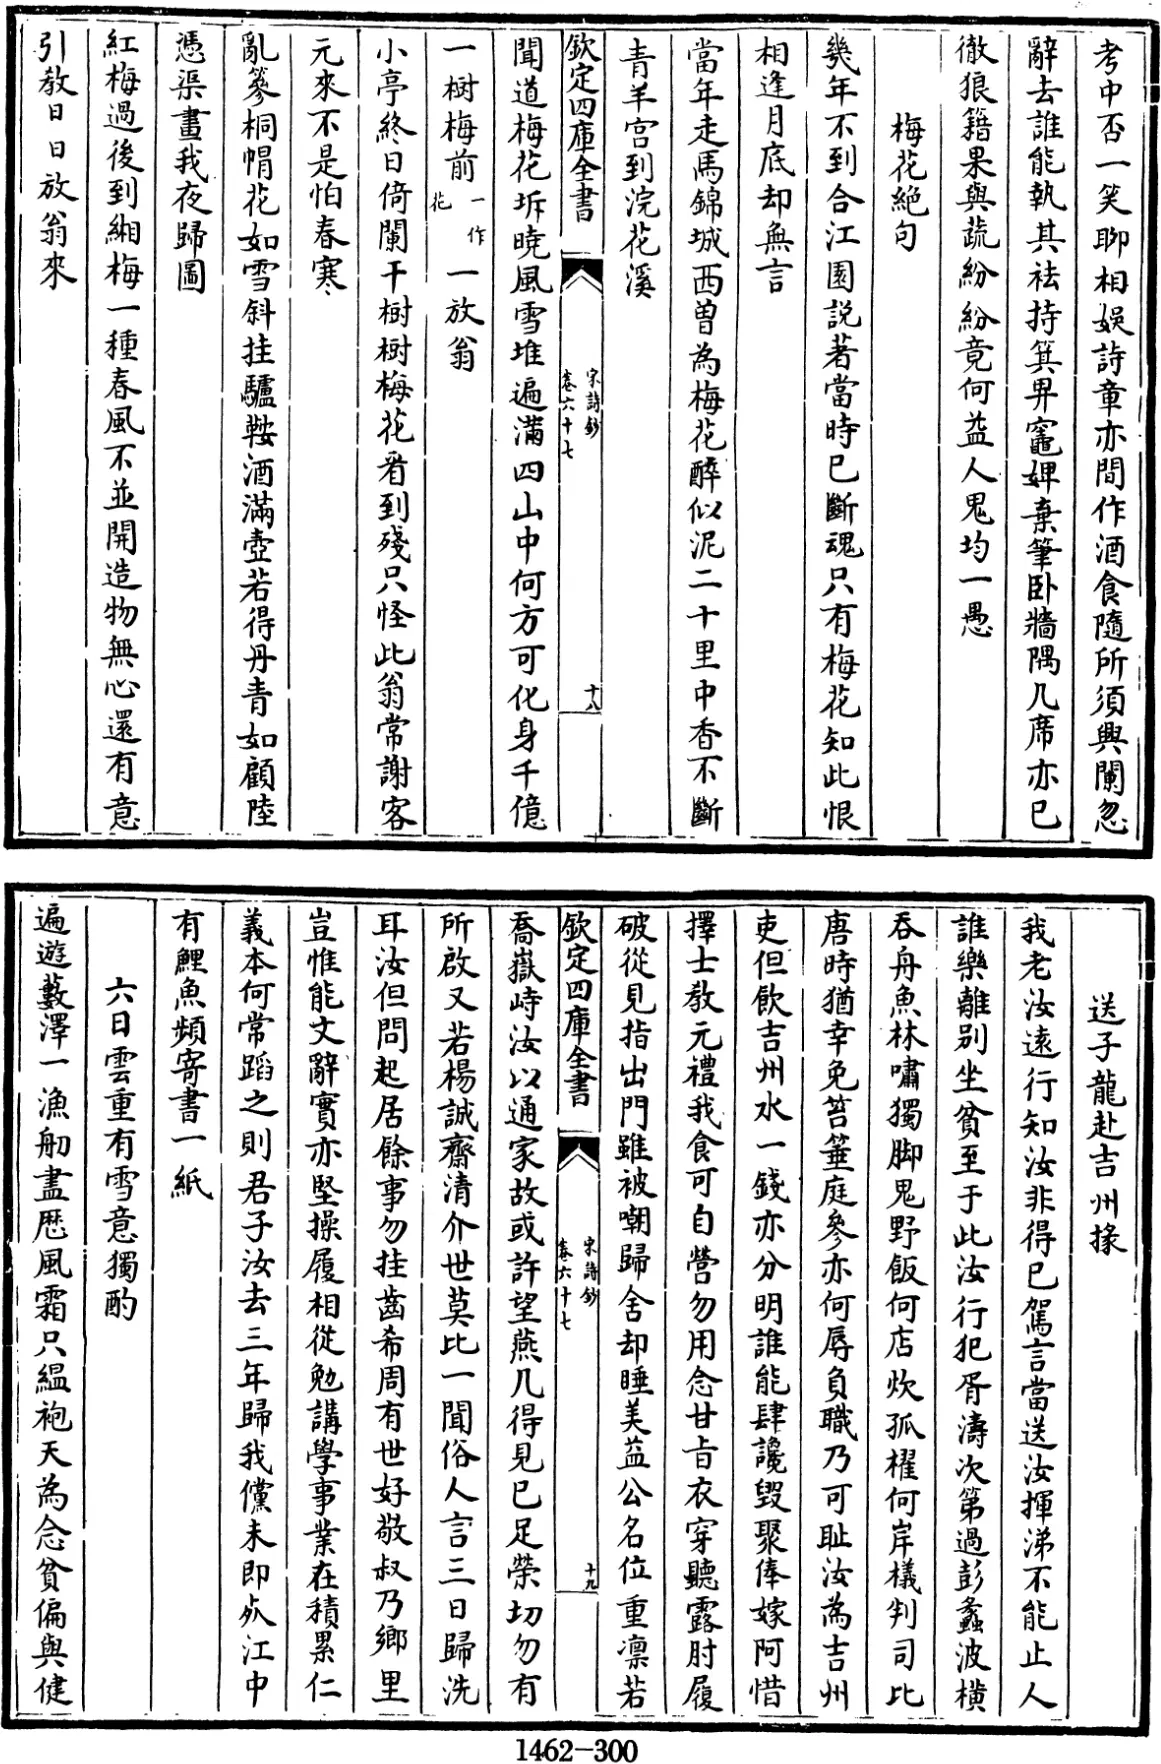 考中否一笑聊相娛詩章亦間作酒食隨所須興闌忽
辭去誰能執其袪持箕畀竈婢棄筆卧牆隅几席亦已
徹狼籍果與蔬紛紛竟何益人鬼均一愚
梅花絶句
幾年不到合江園説著當時已斷魂只有梅花知此恨
相逢月底却無言
當年走馬錦城西曽為梅花醉似泥二十里中香不斷
青羊宫到浣花溪
欽定四庫全書
宋詩鈔
卷六十七
十八
聞道梅花坼曉風雪堆遍滿四山中何方可化身千億
一樹梅前一作花一放翁
小亭終日倚闌干樹樹梅花看到殘只怪此翁常謝客
元來不是怕春寒
亂篸桐帽花如雪斜挂驢鞍酒滿壺若得丹青如顧陸
憑渠畫我夜歸圖
紅梅過後到緗梅一種春風不並開造物無心還有意
引教日日放翁來
送子龍赴吉州掾
我老汝遠行知汝非得已駕言當送汝揮涕不能止人
誰樂離别坐貧至于此汝行犯胥濤次第過彭蠡波横
吞舟魚林嘯獨脚鬼野飯何店炊孤櫂何岸檥判司比
唐時猶幸免笞箠庭參亦何辱負職乃可耻汝為吉州
吏但飲吉州水一錢亦分明誰能肆讒毁聚俸嫁阿惜
擇士教元禮我食可自營勿用念甘㫖衣穿聽露肘履
破從見指出門雖被嘲歸舍却睡美益公名位重凛若
欽定四庫全書
宋詩鈔
卷六十七
十九
喬嶽峙汝以通家故或許望燕几得見已足榮切勿有
所啟又若楊誠齋清介世莫比一聞俗人言三日歸洗
耳汝但問起居餘事勿挂齒希周有世好敬叔乃鄉里
豈惟能文辭實亦堅操履相從勉講學事業在積累仁
義本何常蹈之則君子汝去三年歸我儻未即死江中
有鯉魚頻寄書一紙
六日雲重有雪意獨酌
遍遊藪澤一漁舠盡歴風霜只緼袍天為念貧偏與健
1462-300